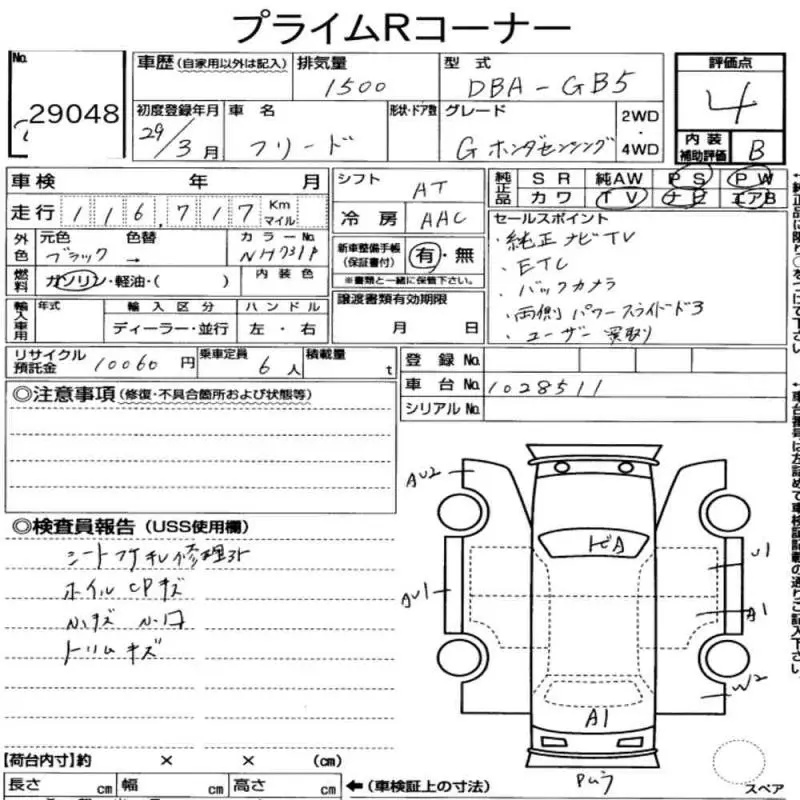 プライムRコーナー
No. 29048
車歴 (自家用以外は記入) 排気量 1500 型式 DBA-GB5 評価点 4
初度登録年月 29/3月 車名 フリード 形状・ドア数 グレード Gホンダセンシング 2WD・4WD 内装補助評価 B
車検 年 月 シフト AT 純正品 SR 純AW PS PW
走行 116,717 Km マイル 冷房 AAC カワ TV ナビ エアB
外色 元色 ブラック 色替 → カラーNo. NH731P 新車整備手帳(保証書付) 有・無
※書類と一緒に保管下さい。
セールスポイント
・純正ナビTV
・ETC
・バックカメラ
・両側パワースライドドア
・ユーザー買取り
燃料 ガソリン・軽油・( ) 内装色
輸入車用 年式 輸入区分 ハンドル 譲渡書類有効期限
ディーラー・並行 左・右 月 日
リサイクル預託金 10060円 乗車定員 6人 積載量 t 登録No.
車台No. 1028511
シリアルNo.
◎注意事項(修復・不具合箇所および状態等)
◎検査員報告(USS使用欄)
シート
ホイルCPキズ
トリムキズ
AU2
トビA
U1
AU1
A1
W2
A1
スペア
【荷台内寸】約 × × (cm)
長さ cm 幅 cm 高さ cm ←(車検証上の寸法)